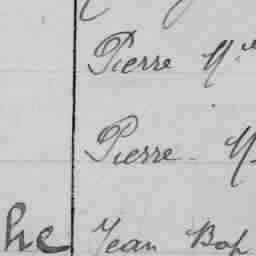 Pierre
Pierre
he Jean Bap